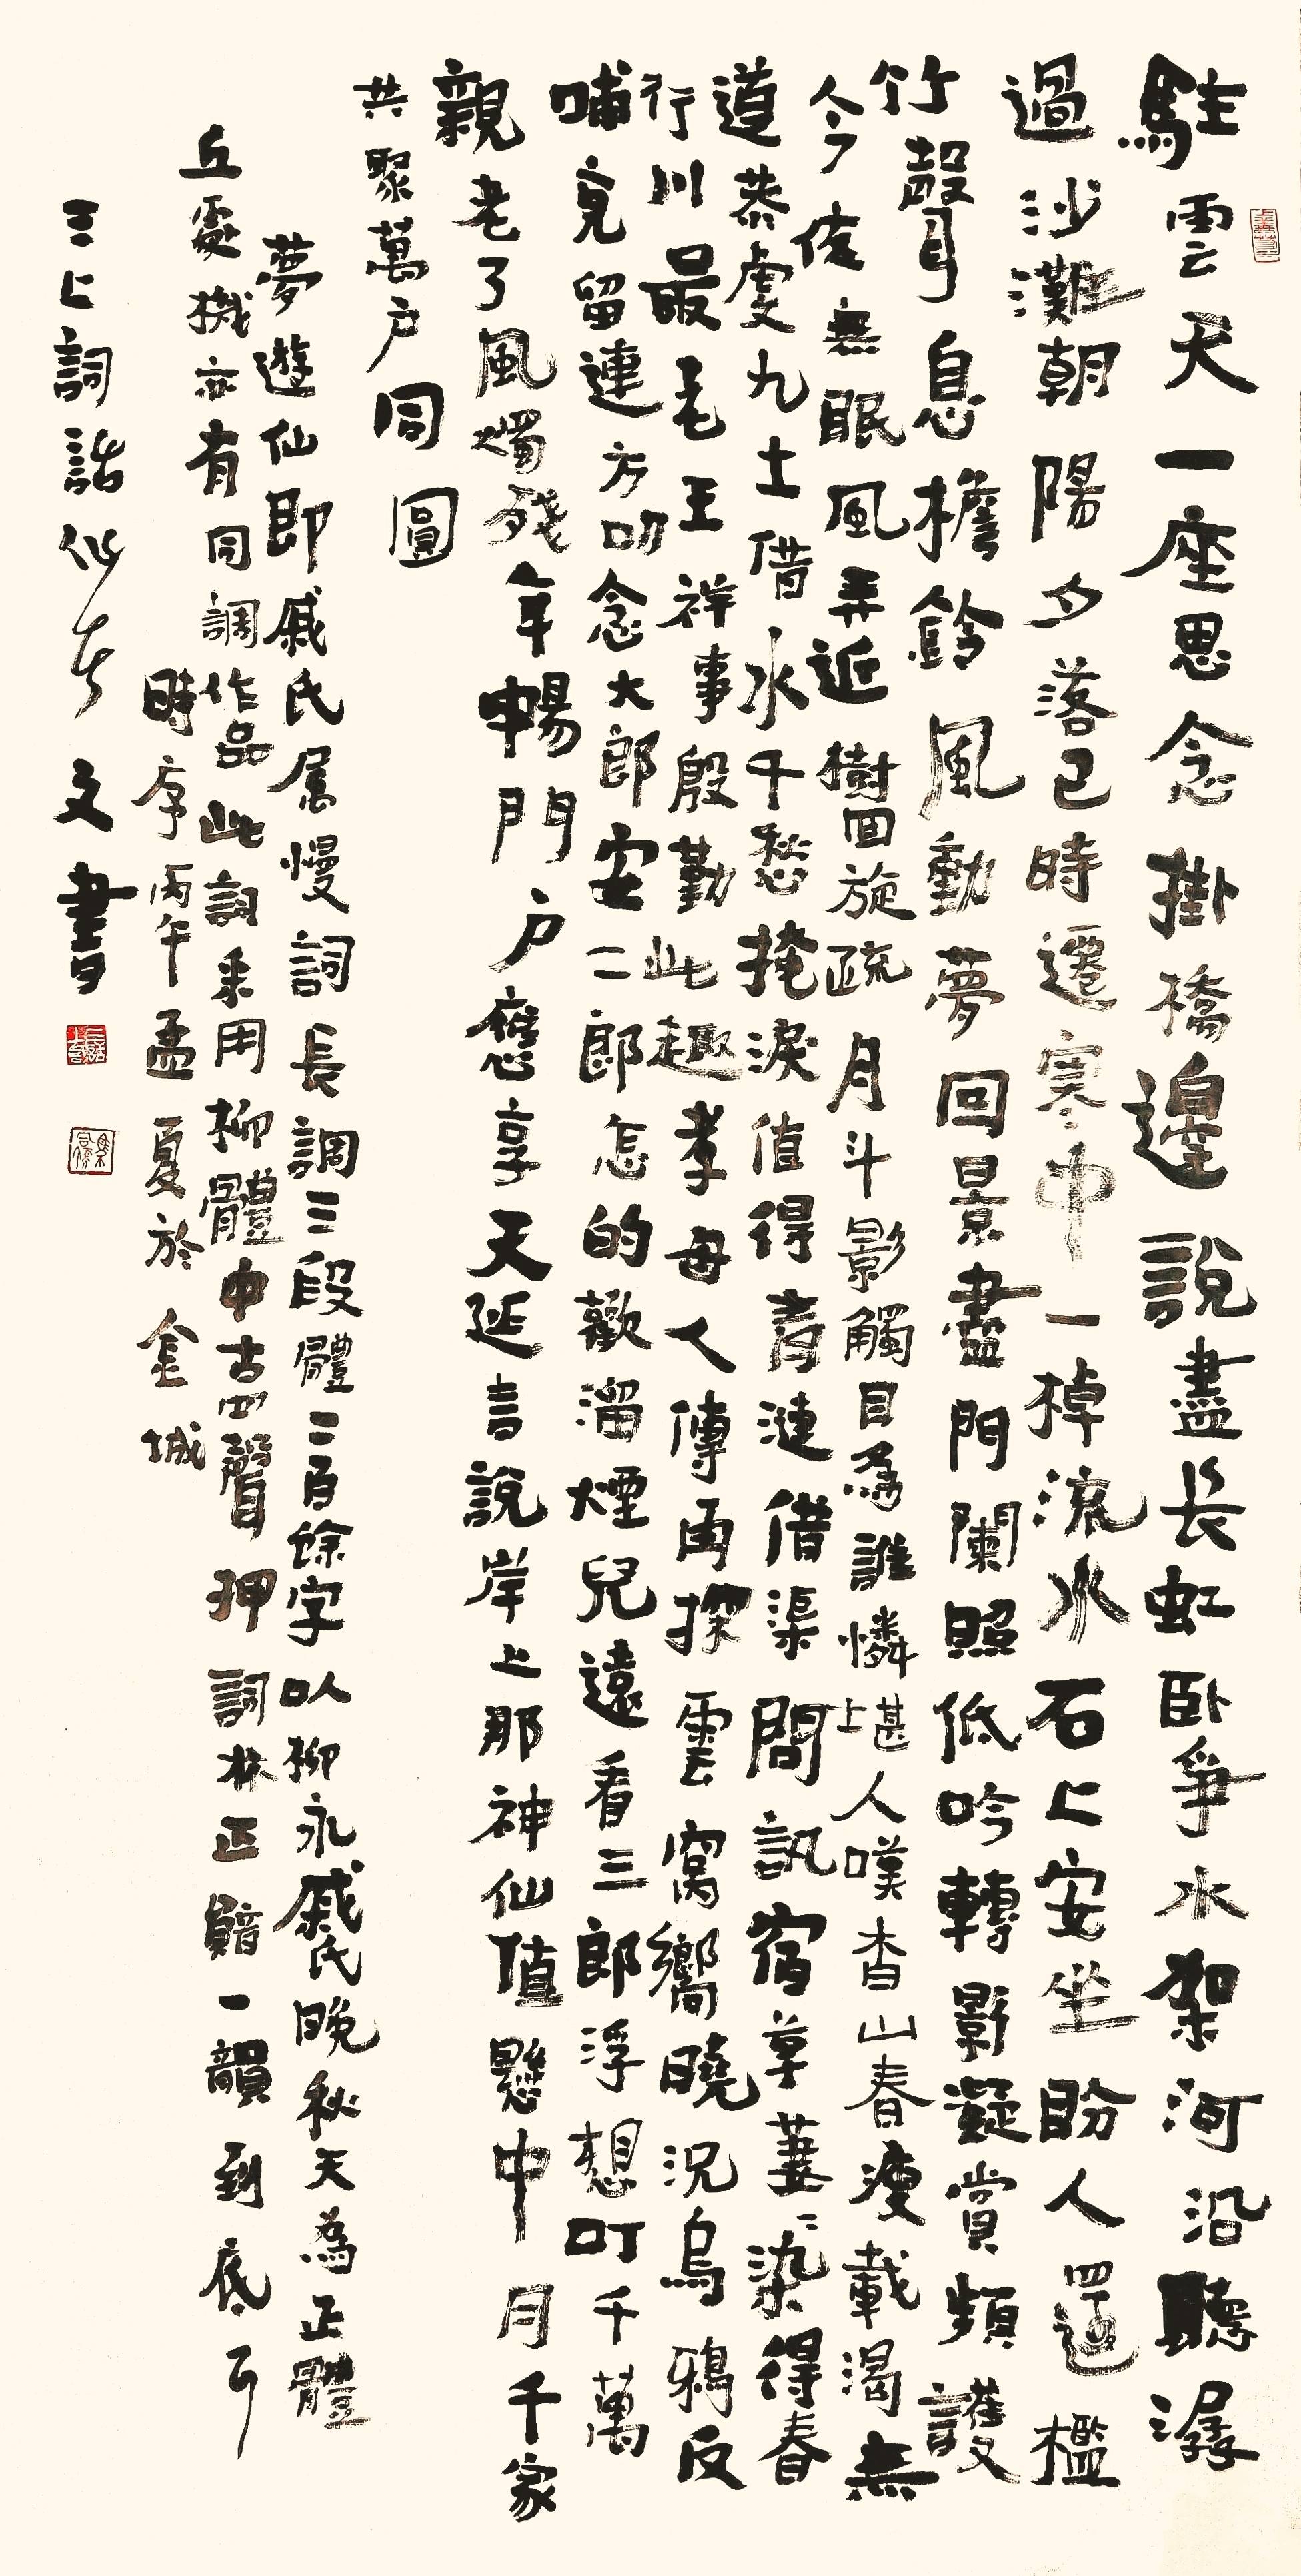 駐雲天一座思念掛橋邊說盡长虹臥爭水架河沿聽潺
過沙灘朝陽夕落已時遷寒中一棹流水石上安坐盼人還檻
竹聲息檐鈴風動夢回景盡門闌照低吟轉影凝賞頻護
今倚無眠風弄近樹回旋疏月斗影觸目為誰憐堪人嘆杳山春瘦載渴無
道恭虔九士借水千愁掩淚值得青漣借渠問訊宿草萋萋染得春
行川最毛王祥事殷勤此趣孝母人傳再探雲窩嚮曉況烏鴉反
哺竟留連方叨念大郎安二郎怎的歡溜煙兒遠看三郎浮想叮千萬
親老了風燭殘年暢門户應享天延言說岸上那神仙值懸中月千家
共聚萬户同圓
夢遊仙即戚氏属慢詞長調三段體二百餘字以柳永戚氏晚秋天為正體
丘處機亦有同調作品此詞采用柳體中古四聲押詞林正韻一韻到底
時序丙午孟夏於金城
三上詞話 文書